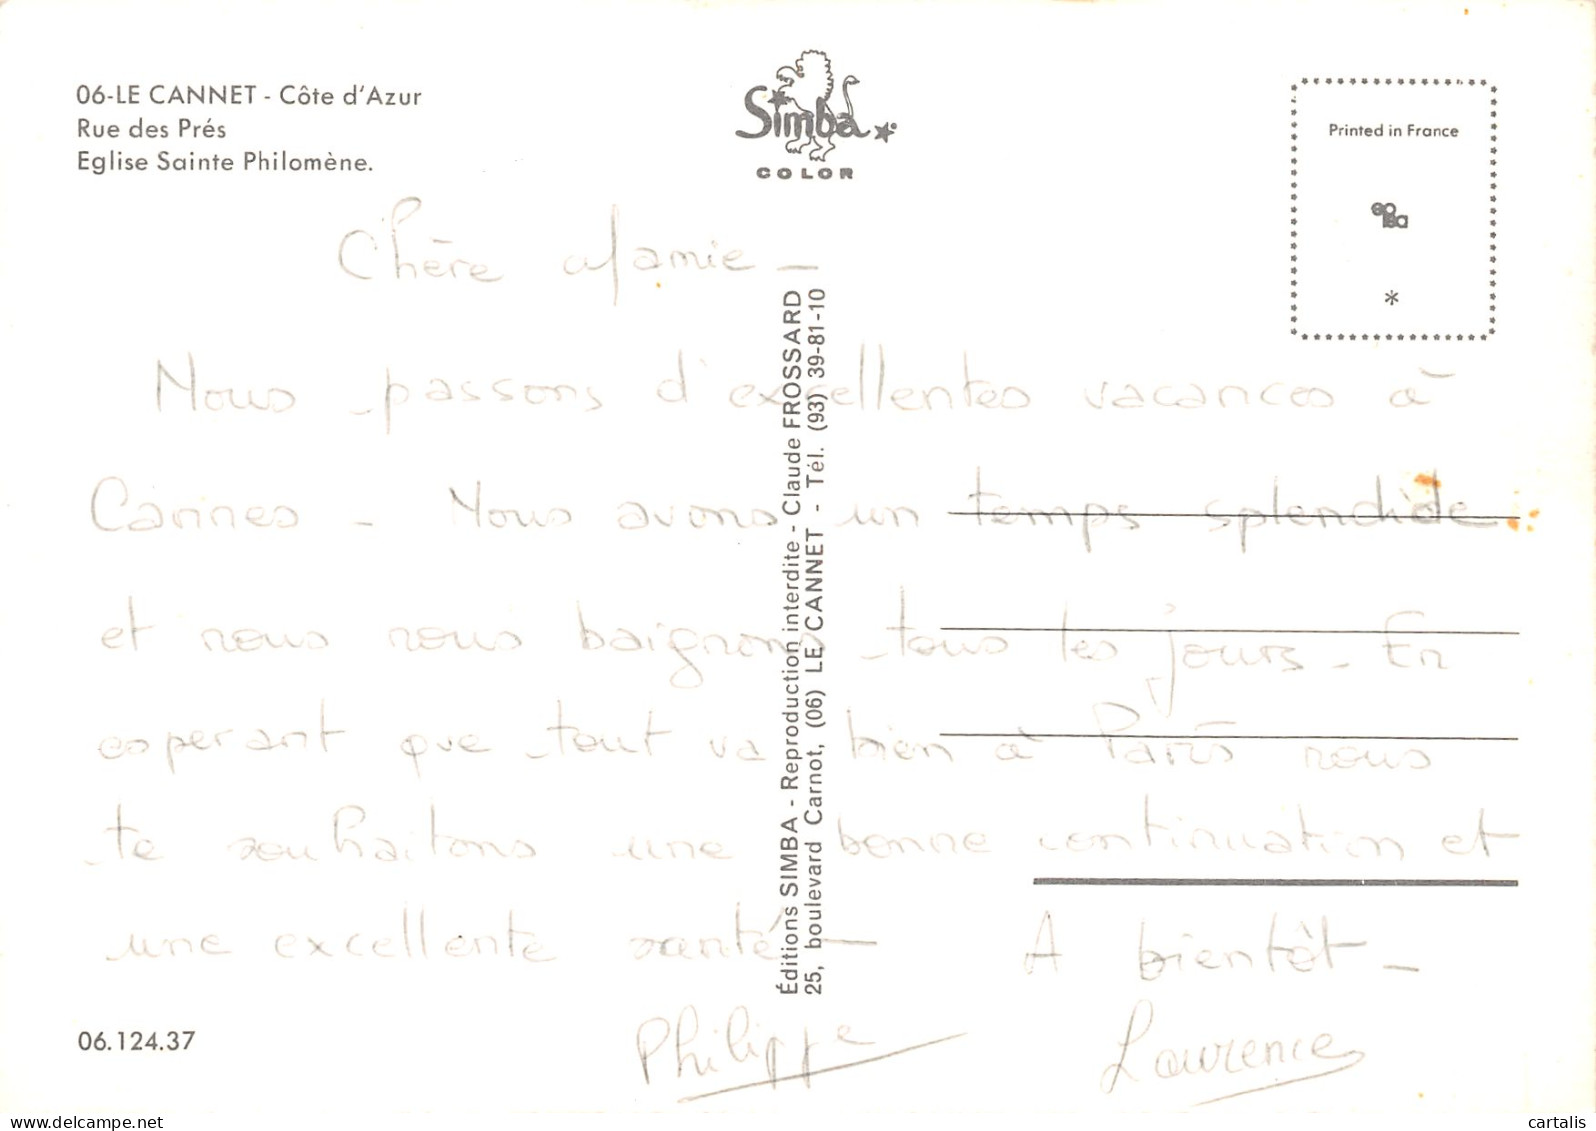 06-LE CANNET - Côte d'Azur
Rue des Prés
Eglise Sainte Philomène.
Simba
COLOR
Printed in France
*
Chère Mamie -
Nous passons d'excellentes vacances à
Cannes - Nous avons un temps splendide
et nous nous baignons tous les jours - En
esperant que tout va bien à Paris nous
te souhaitons une bonne continuation et
une excellente santé - A bientôt -
Philippe Laurence
Éditions SIMBA - Reproduction interdite - Claude FROSSARD
25, boulevard Carnot, (06) LE CANNET - Tél. (93) 39-81-10
06.124.37
myphotos.net
cartalis